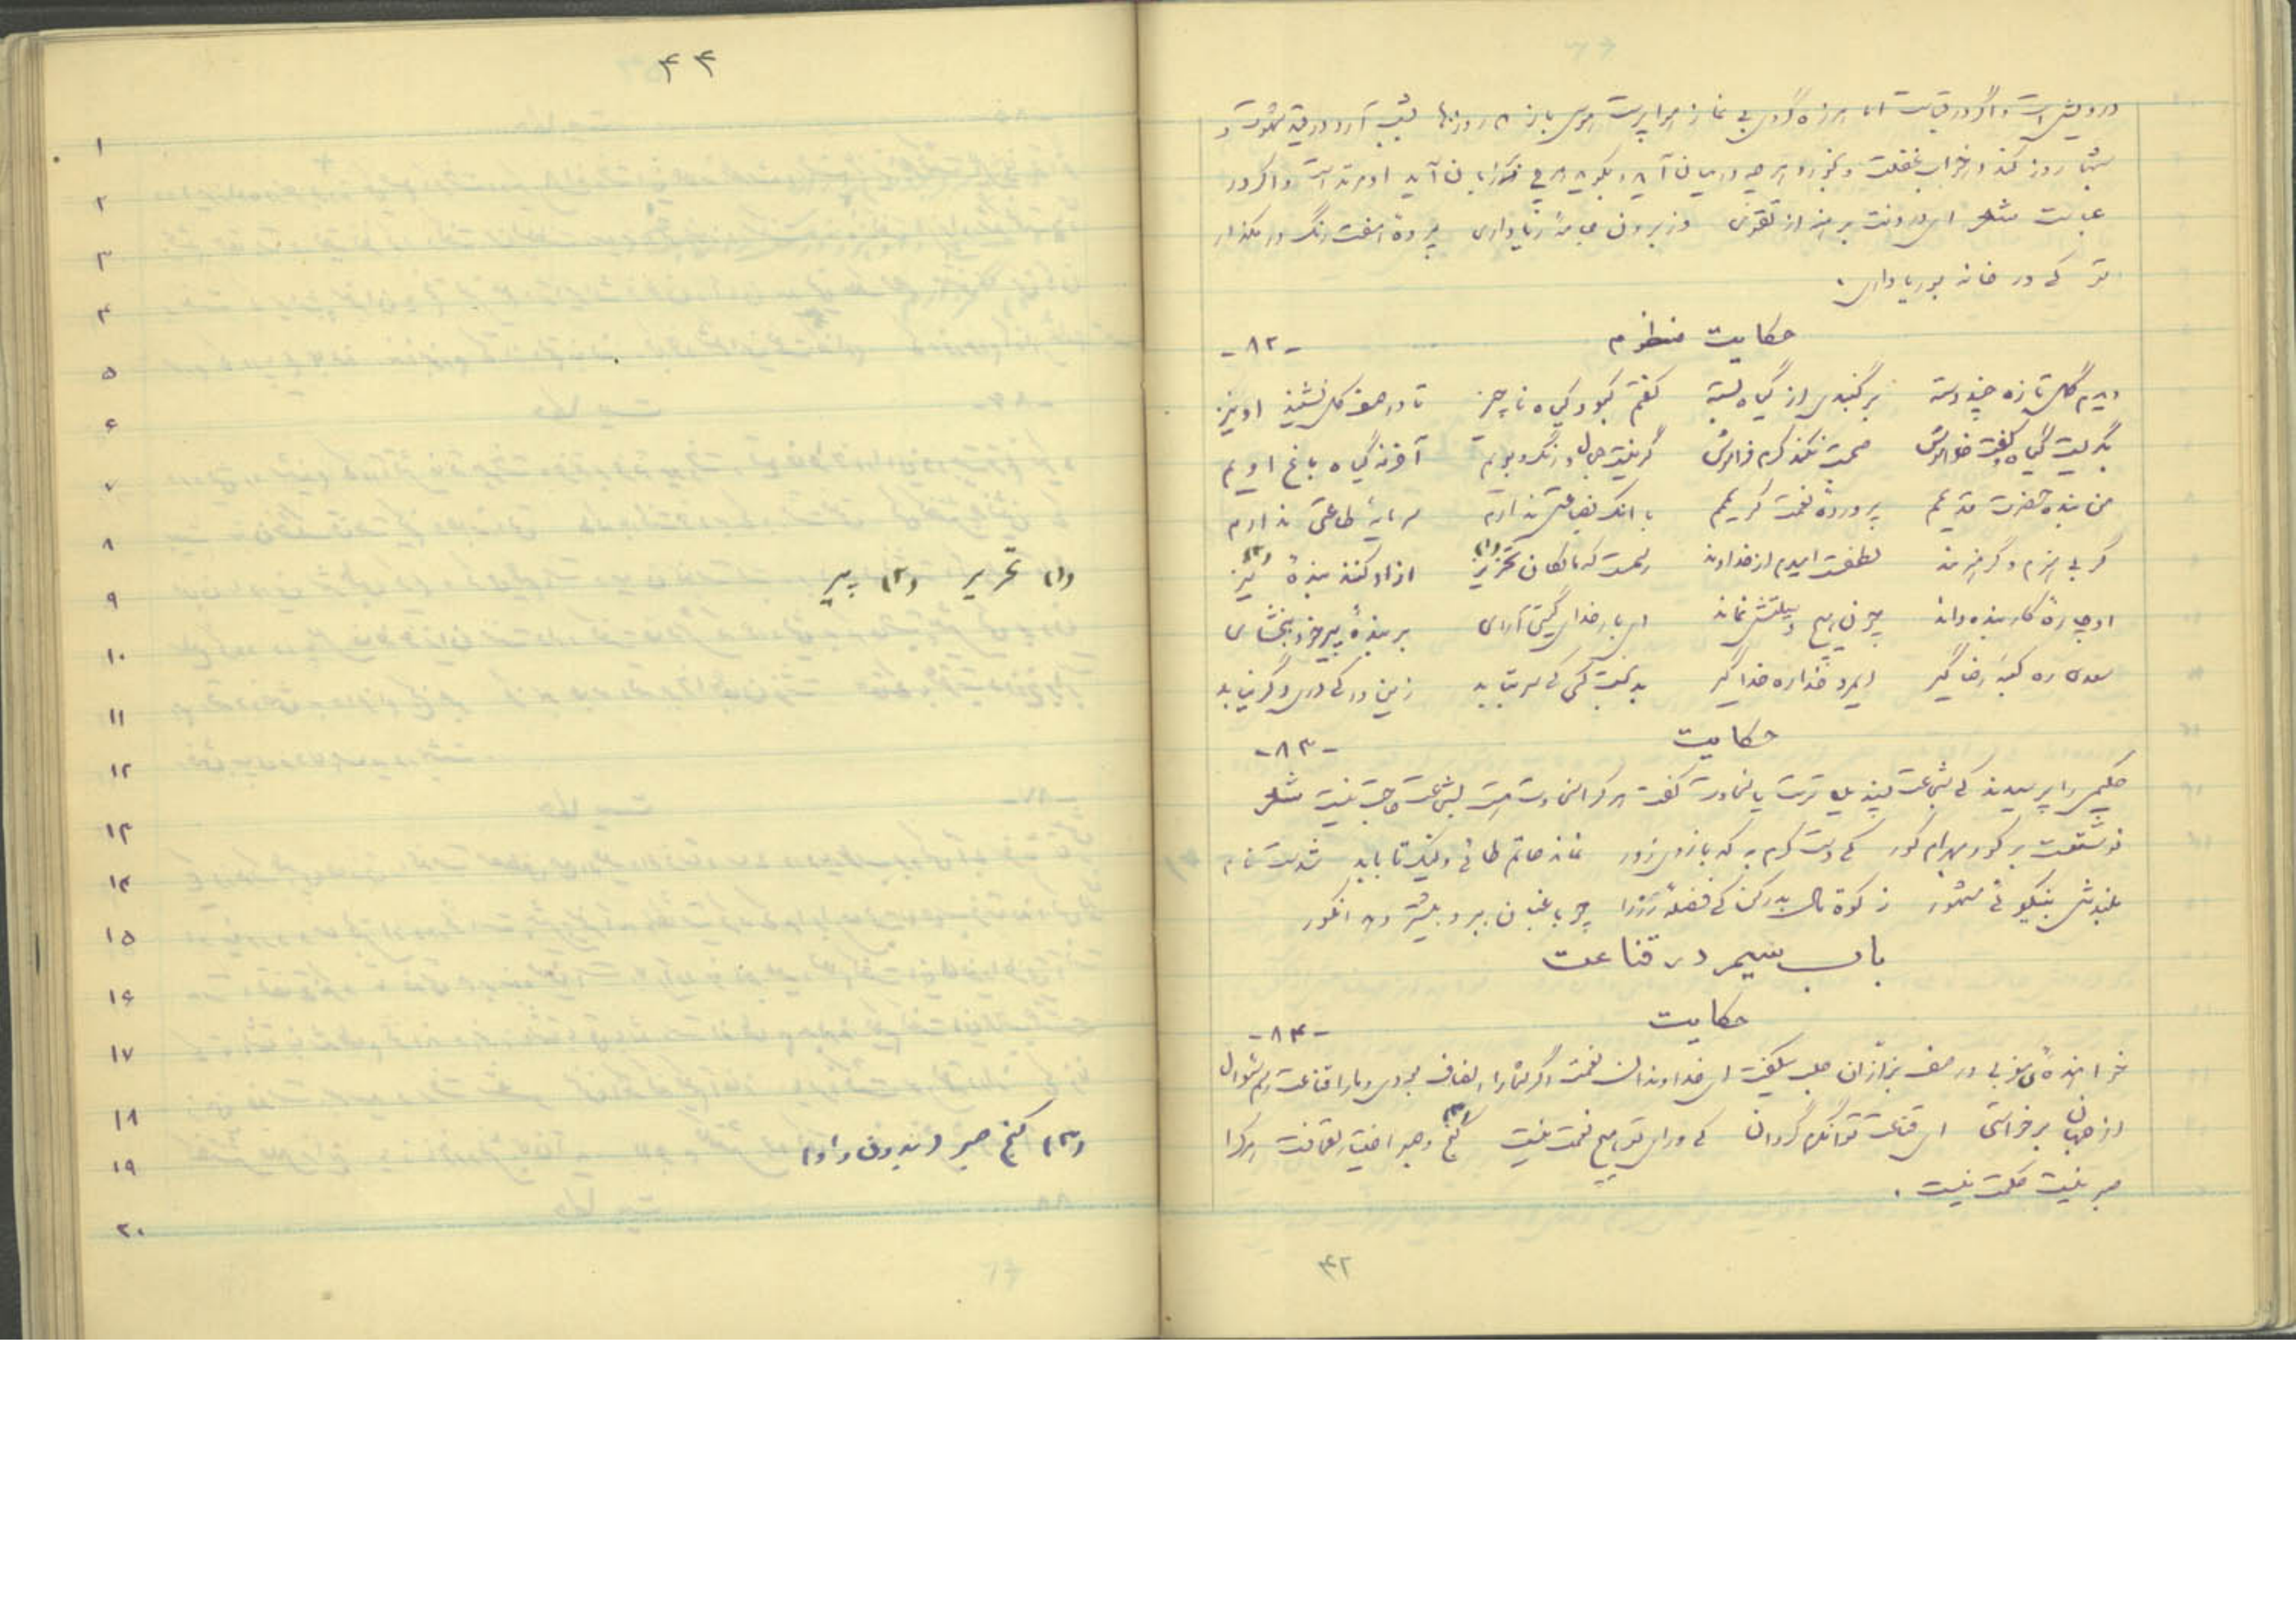 درویش است و اگر در قباست اما هرزه گردی بی نماز هوا پرست هوس باز که روزها بشب آرد در قید شهوت و
شبها روز کند در خواب غفلت و بخورد هر چه در میان آید و بگوید هر چه بر زبان آید او مرتد است و اگر در
عباست شعر ای درونت برهنه از تقوی وز برون جامهٔ ریا داری پردهٔ هفت رنگ در مگذار
تو کی در خانه بوریا داری.
حکایت منظوم -۸۲-
دیدم گل تازه چند دسته بر گنبدی از گیاه بسته گفتم کبود گیاه ناچیز تا در صف گل نشیند او نیز
بگریست گیاه و گفت خاموش صحبت نکند کرم فراموش گر نیست جمال و رنگ و بویم آخر نه گیاه باغ اویم
من بنده حضرت قدیمم پروردهٔ نعمت کریمم با آنک بضاعتی ندارم سرمایهٔ طاعتی ندارم
گر بی هنرم و گر هنرمند لطفست امیدم از خداوند رسمست که مالکان تحریر (۱) آزاد کنند بندهٔ پیر (۲)
او چارهٔ کار بنده داند چون هیچ وسیلتش نماند ای بار خدای گیتی آرای بر بندهٔ پیر خود بخشای
سعدی ره کعبهٔ رضا گیر ای مرد خدا ره خدا گیر بدبخت کسی کی سر بتابد زین در کی دری دگر نیابد
حکایت -۸۳-
حکیمی را پرسیدند کی شجاعت پسندیده ترست یا سخاوت گفت هر کرا سخاوت است بشجاعت حاجت نیست شعر
نوشتست بر گور بهرام گور کی دست کرم به که بازوی زور نماند حاتم طائی ولیک تا بابد شدست نام
بلندش بنیکوئی مشهور زکوة مال بدر کن کی فضلهٔ رزرا چو باغبان ببرد بیشتر دهد انگور
باب سیم در قناعت
حکایت -۸۴-
خواهندهٔ مغربی در صف بزازان حلب میگفت ای خداوندان نعمت اگر شمارا انصاف بودی و مارا قناعت رسم سؤال
از جهان برخواستی ای قناعت توانگرم گردان کی ورای تو هیچ نعمت نیست کنج و صبر (۳) اختیار لقمانست هر کرا
صبر نیست حکمت نیست.
۴۳
۴۴
۱
۲
۳
۴
۵
۶
۷
۸
۹
۱۰
۱۱
۱۲
۱۳
۱۴
۱۵
۱۶
۱۷
۱۸
۱۹
۲۰
(۱) تحریر (۲) پیر
(۳) کنج صبر (بدون واو)